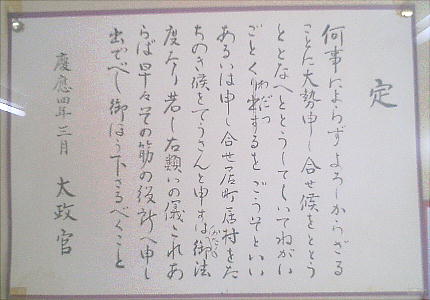 定
何事によらずよろしからざる
ことに大勢申し合せ候をととう
ととなへととうしてしいてねがい
ごとくわだつるをごうそといい
あるいは申し合せ居町居村をた
ちのき候をてうさんと申すは御法
度たり若し右類いの儀これあ
らば早々その筋の役所へ申し
出でべし御ほう下さるべくこと
慶應四年三月 太政官